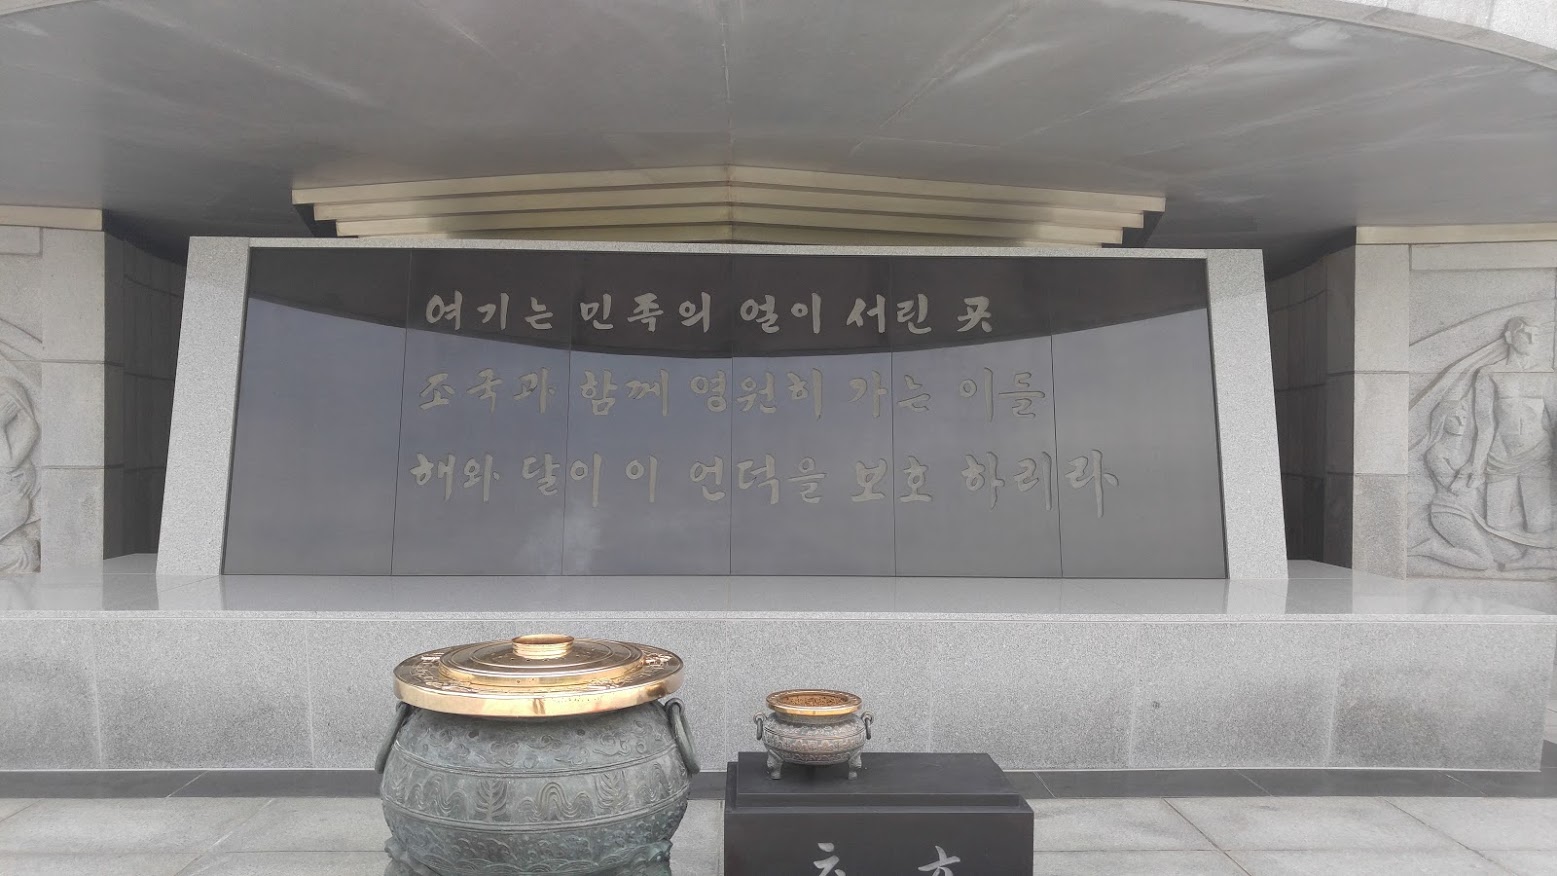 여기는 민족의 얼이 서린 곳
조국과 함께 영원히 가는 이들
해와 달이 이 언덕을 보호 하리라